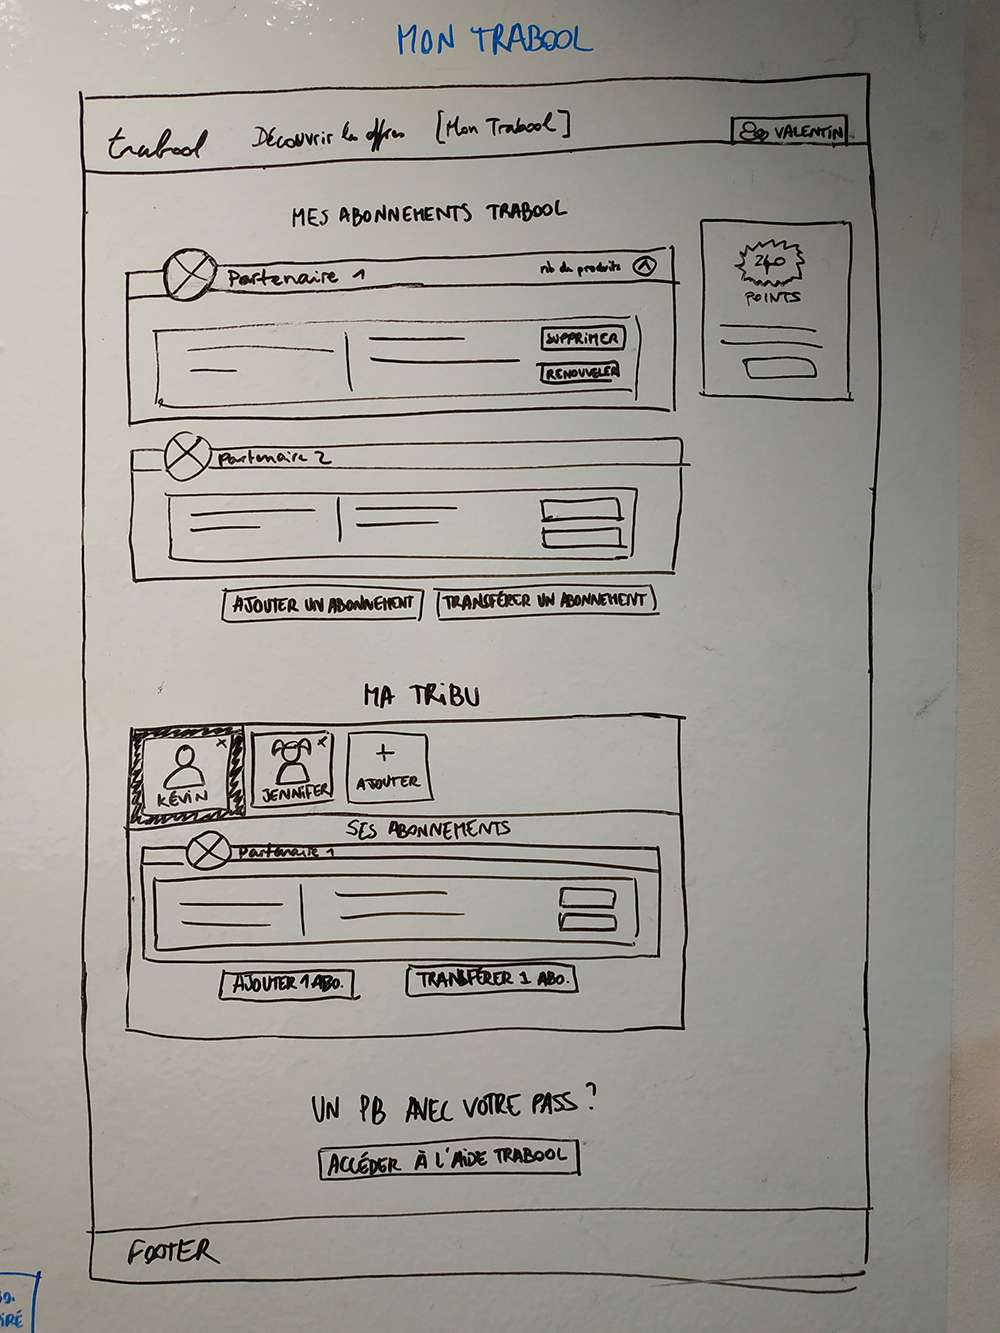 MON TRABOOL
trabool Découvrir les offres [Mon Trabool] VALENTIN
MES ABONNEMENTS TRABOOL
Partenaire 1 nb de produits
SUPPRIMER
RENOUVELER
240
POINTS
Partenaire 2
AJOUTER UN ABONNEMENT TRANSFÉRER UN ABONNEMENT
MA TRIBU
x x +
KÉVIN JENNIFER AJOUTER
SES ABONNEMENTS
Partenaire 1
AJOUTER 1 ABO. TRANSFÉRER 1 ABO.
UN PB AVEC VOTRE PASS ?
ACCÉDER À L'AIDE TRABOOL
FOOTER